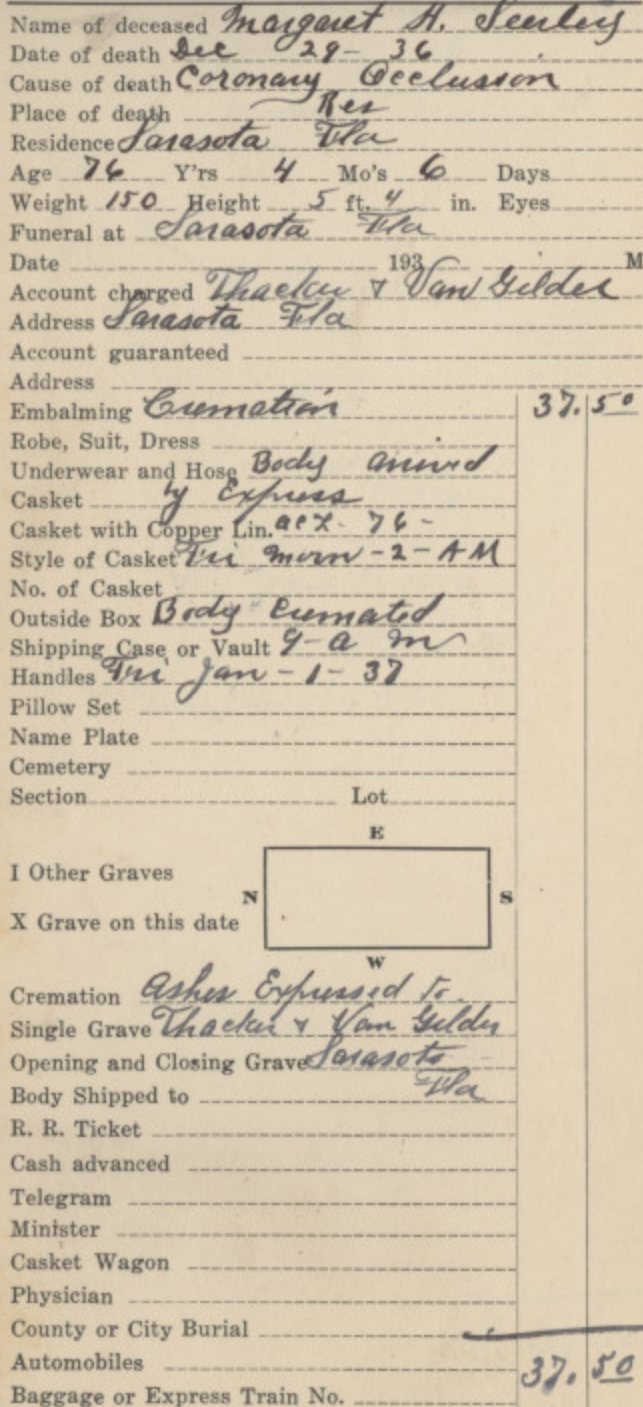 Name of deceased Margaret H. Seerley
Date of death Dec 29 - 36
Cause of death Coronary Occlussion
Place of death Res
Residence Sarasota Fla
Age 76 Y'rs 4 Mo's 6 Days
Weight 150 Height 5 ft. 4 in. Eyes
Funeral at Sarasota Fla
Date 193 M
Account charged Thacker & Van Gilder
Address Sarasota Fla
Account guaranteed
Address
Embalming Cremation 37.50
Robe, Suit, Dress
Underwear and Hose Body arrived
Casket by Express
Casket with Copper Lin. acl - 76 -
Style of Casket Fri morn - 2 - AM
No. of Casket
Outside Box Body Cremated
Shipping Case or Vault 9 - a m
Handles Fri Jan - 1 - 37
Pillow Set
Name Plate
Cemetery
Section Lot
E
I Other Graves
N S
X Grave on this date
W
Cremation Ashes Expressed to
Single Grave Thacker & Van Gilder
Opening and Closing Grave Sarasota
Body Shipped to Fla
R. R. Ticket
Cash advanced
Telegram
Minister
Casket Wagon
Physician
County or City Burial
Automobiles 37.50
Baggage or Express Train No.